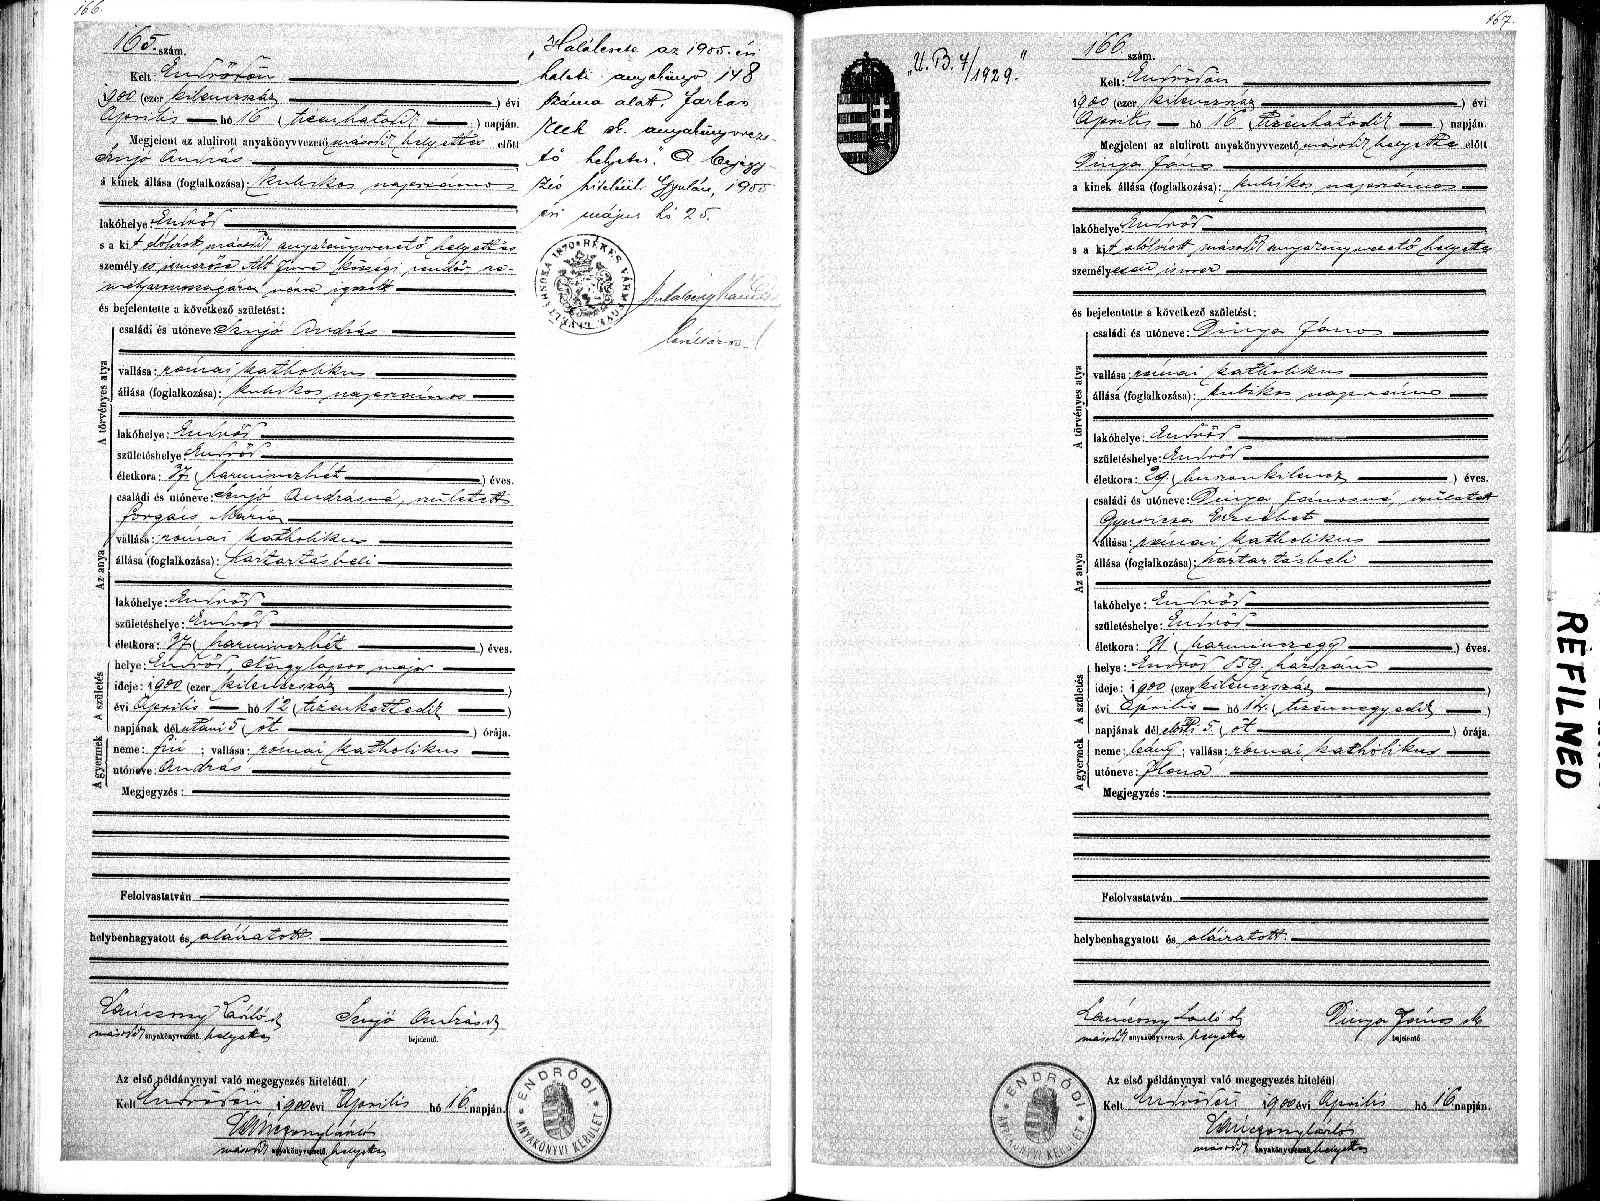 166.
165. szám.
Kelt: Endrődön
1900 (ezer kilenczszáz) évi
Április hó 16 (tizenhatodik) napján.
Megjelent az alulirott anyakönyvvezető második helyettes előtt
András
a kinek állása (foglalkozása): kubikos napszámos
lakóhelye: Endrőd
s a kit alólirott második anyakönyvvezető helyettes
személyes
és bejelentette a következő születést:
A törvényes atya
családi és utóneve: András
vallása: római katholikus
állása (foglalkozása): kubikos napszámos
lakóhelye: Endrőd
születéshelye: Endrőd
életkora: 37 (harminczhét) éves.
Az anya
családi és utóneve: Andrásné, született
Forgács Mária
vallása: római katholikus
állása (foglalkozása): háztartásbeli
lakóhelye: Endrőd
születéshelye: Endrőd
életkora: 37 (harminczhét) éves.
A születés
helye: Endrőd, major
ideje: 1900 (ezer kilenczszáz)
évi Április hó 12 (tizenkettedik)
napjának délutáni 5 (öt) órája.
A gyermek
neme: fiú; vallása: római katholikus
utóneve: András
Megjegyzés:
Felolvastatván
helybenhagyatott és aláíratott.
András
második anyakönyvvezető helyettes bejelentő.
Az első példánynyal való megegyezés hiteléül.
Kelt Endrődön 1900 évi Április hó 16 napján.
második anyakönyvvezető helyettes
ENDRŐDI
ANYAKÖNYVI KERÜLET
"Halálesete az 1900. évi
halotti anyakönyv 148
száma alatt. Farkas
anyakönyvveze-
tő helyettes." A bejegy-
zés hiteléül. Gyulán, 1900
évi május hó 25.
BÉKÉS VÁRMEGYE LEVÉLTÁRNOKA 1870
levéltárnok
167.
"U. B. 7/1929."
166 szám.
Kelt: Endrődön
1900 (ezer kilenczszáz) évi
Április hó 16 (tizenhatodik) napján.
Megjelent az alulirott anyakönyvvezető második helyettes előtt
Dinya János
a kinek állása (foglalkozása): kubikos napszámos
lakóhelye: Endrőd
s a kit alólirott második anyakönyvvezető helyettes
személyesen ismer
és bejelentette a következő születést:
A törvényes atya
családi és utóneve: Dinya János
vallása: római katholikus
állása (foglalkozása): kubikos napszámos
lakóhelye: Endrőd
születéshelye: Endrőd
életkora: 29 (huszonkilencz) éves.
Az anya
családi és utóneve: Dinya Jánosné, született
Gyuricza Erzsébet
vallása: római katholikus
állása (foglalkozása): háztartásbeli
lakóhelye: Endrőd
születéshelye: Endrőd
életkora: 31 (harminczegy) éves.
A születés
helye: Endrőd 859. házszám
ideje: 1900 (ezer kilenczszáz)
évi Április hó 14. (tizennegyedik)
napjának délelőtti 5. (öt) órája.
A gyermek
neme: leány; vallása: római katholikus
utóneve: Ilona
Megjegyzés:
Felolvastatván
helybenhagyatott és aláíratott.
Dinya János sk
második anyakönyvvezető helyettes bejelentő
Az első példánynyal való megegyezés hiteléül
Kelt Endrődön 1900 évi Április hó 16 napján.
második anyakönyvvezető helyettes
ENDRŐDI
ANYAKÖNYVI KERÜLET
REFILMED